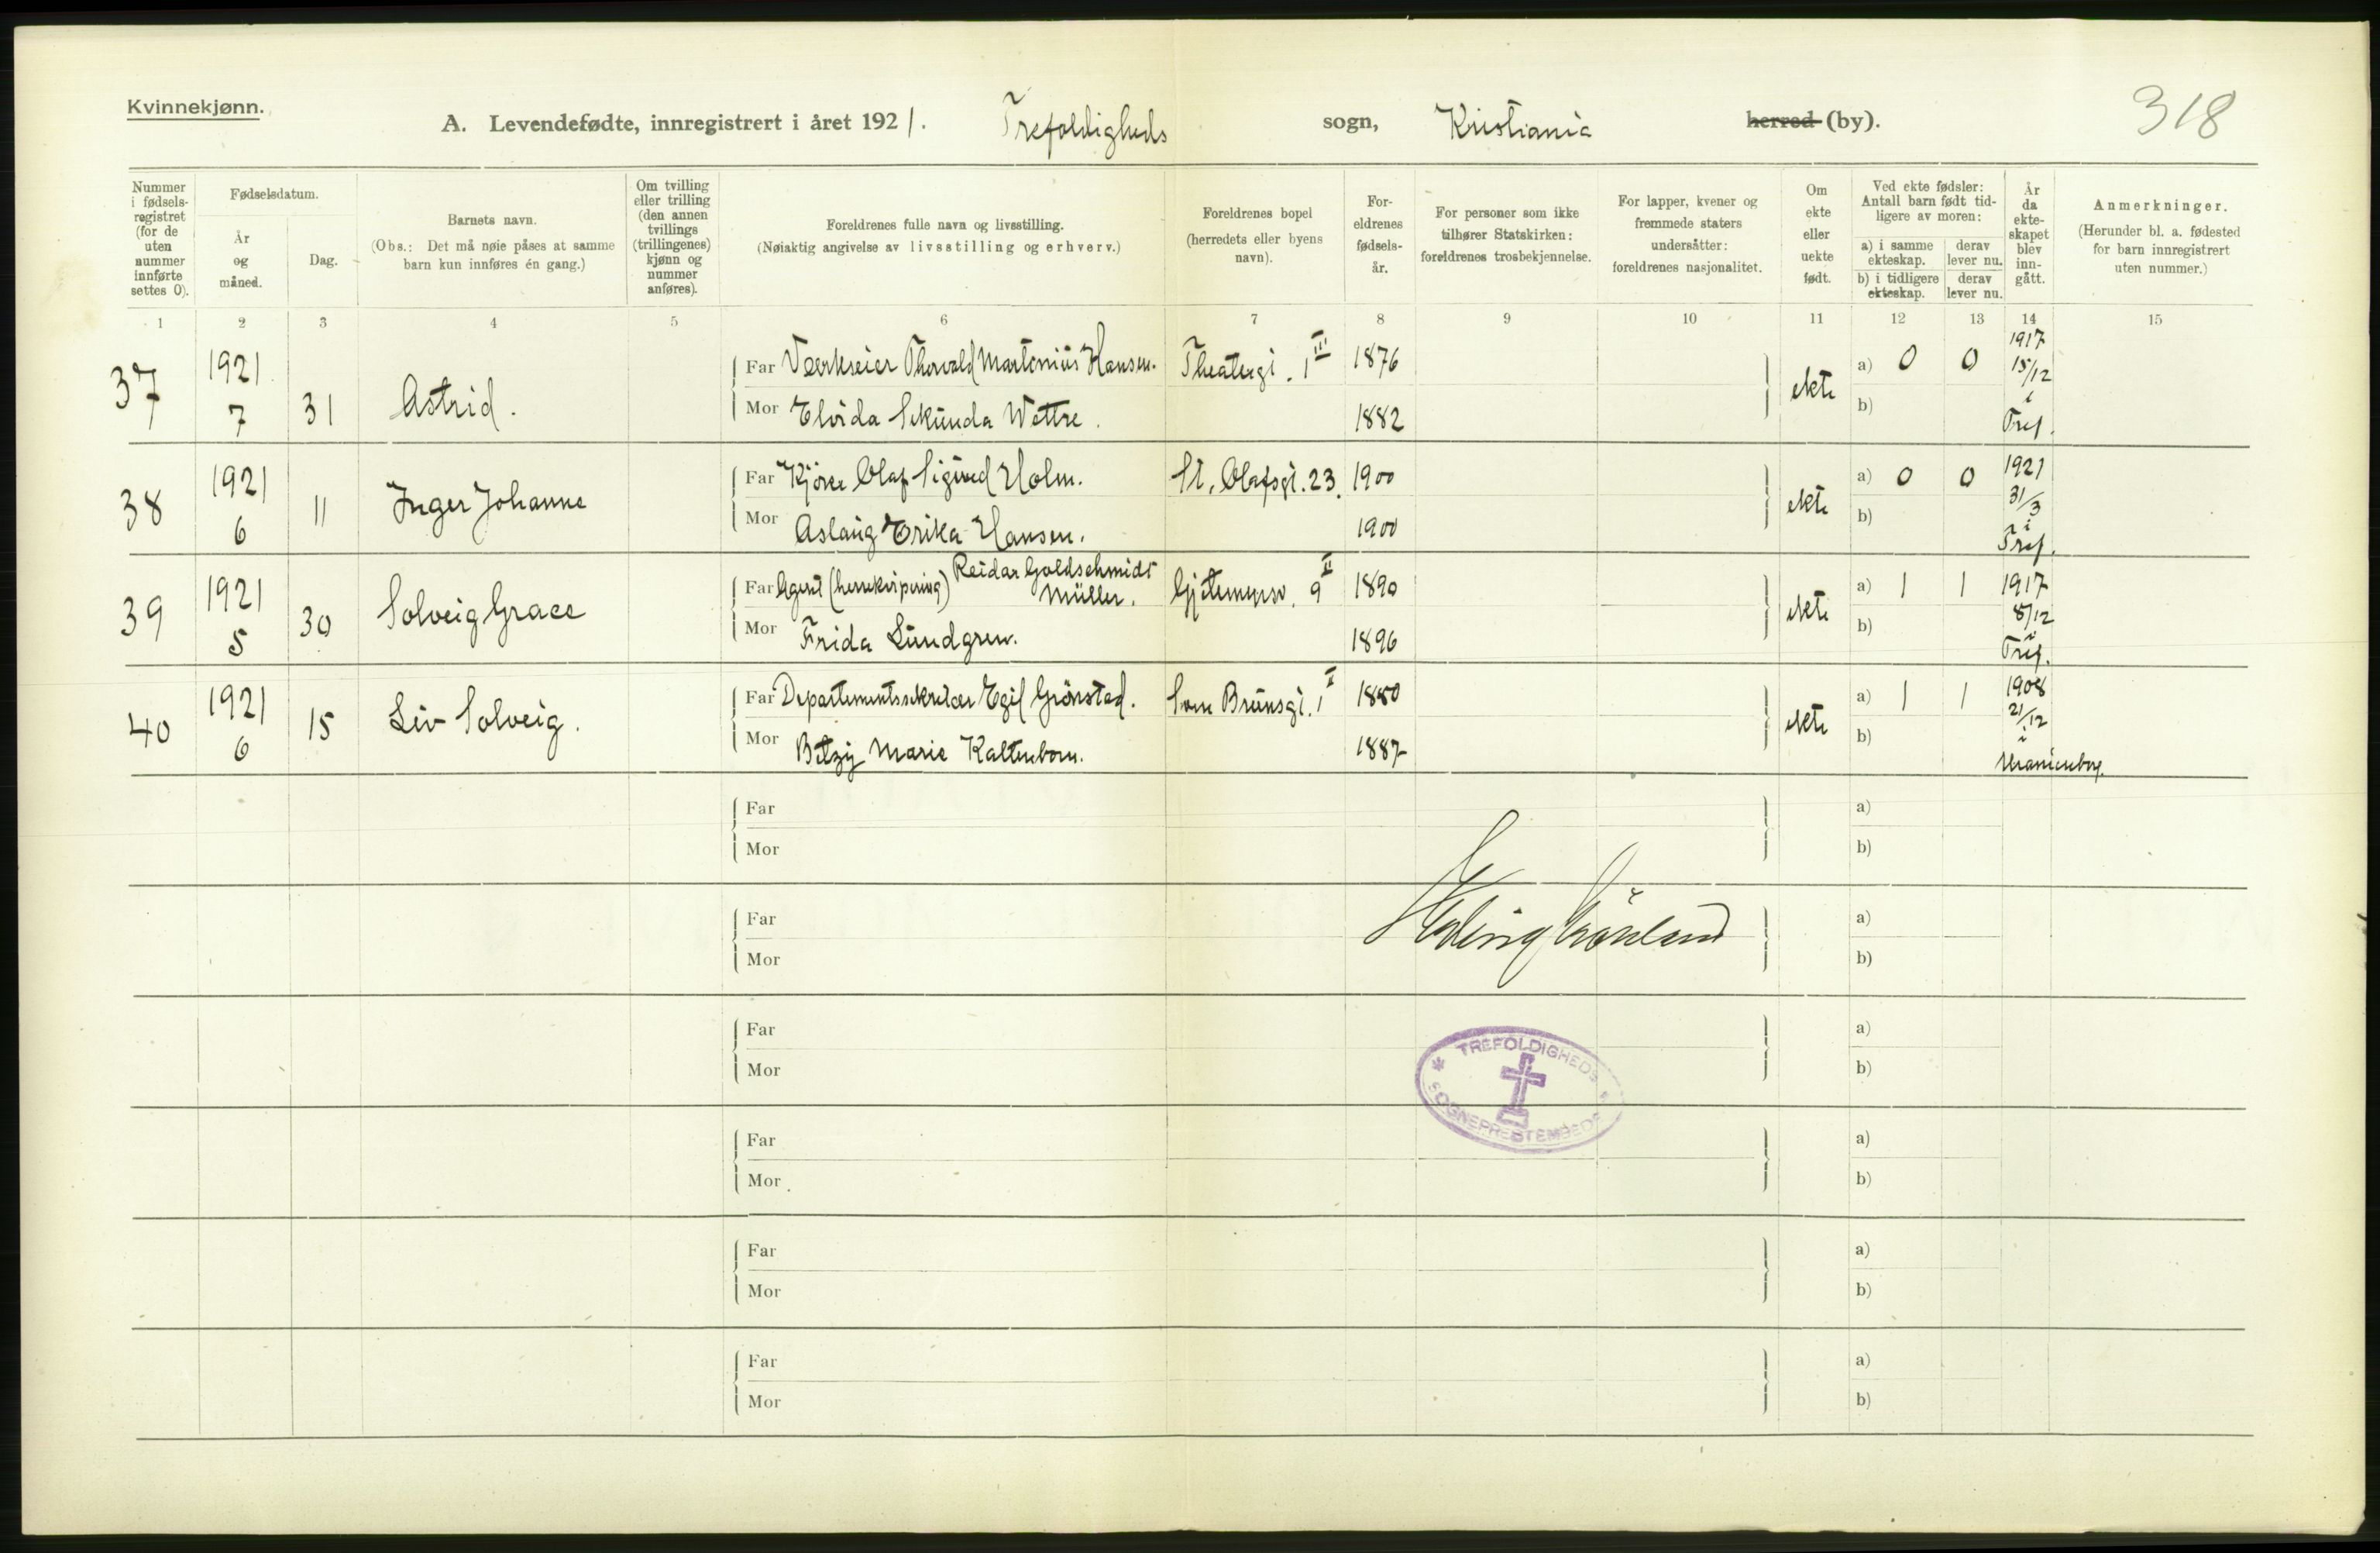 Kvinnekjønn.
A. Levendefødte, innregistrert i året 1921. Trefoldigheds sogn, Kristiania herred (by).
318
Nummer i fødsels-registret (for de uten nummer innførte settes 0).
Fødselsdatum.
År og måned.
Dag.
Barnets navn.
(Obs.: Det må nøie påses at samme barn kun innføres én gang.)
Om tvilling eller trilling (den annen tvillings (trillingenes) kjønn og nummer anføres).
Foreldrenes fulle navn og livsstilling.
(Nøiaktig angivelse av livsstilling og erhverv.)
Foreldrenes bopel (herredets eller byens navn).
For-eldrenes fødsels-år.
For personer som ikke tilhører Statskirken: foreldrenes trosbekjennelse.
For lapper, kvener og fremmede staters undersåtter: foreldrenes nasjonalitet.
Om ekte eller uekte født.
Ved ekte fødsler: Antall barn født tid-ligere av moren:
a) i samme ekteskap.
derav lever nu.
b) i tidligere ekteskap.
derav lever nu.
År da ekte-skapet blev inn-gått.
Anmerkninger.
(Herunder bl. a. fødested for barn innregistrert uten nummer.)
1 2 3 4 5 6 7 8 9 10 11 12 13 14 15
37 1921 7 31 Astrid.
Far Værkseier Thorvald Martinius Hansen. Theatergt. 1 III 1876
Mor Elvida Sekunda Wettre. 1882
ekte a) 0 0 b) 1917 15/12 i Tref.
38 1921 6 11 Inger Johanne
Far Kjører Olaf Sigurd Holm. St. Olafsgt. 23. 1900
Mor Aslaug Erika Hansen. 1900
ekte a) 0 0 b) 1921 31/3 i Tref.
39 1921 5 30 Solveig Grace
Far Agent (herrekvipering) Reidar Goldschmidt Müller. 9 II 1890
Mor Frida Lundgren. 1896
ekte a) 1 1 b) 1917 8/12 i Tref.
40 1921 6 15 Liv Solveig.
Far Departementssekretær Egil Grønstad. Sven Brunsgt. 1 I 1880
Mor Betzy Marie Kaltenborn. 1887
ekte a) 1 1 b) 1908 21/12 i Uranienborg.
Far a)
Mor b)
Far a)
Mor b)
Far a)
Mor b)
TREFOLDIGHEDS
SOGNEPRESTEMBEDE
Far a)
Mor b)
Far a)
Mor b)
Far a)
Mor b)